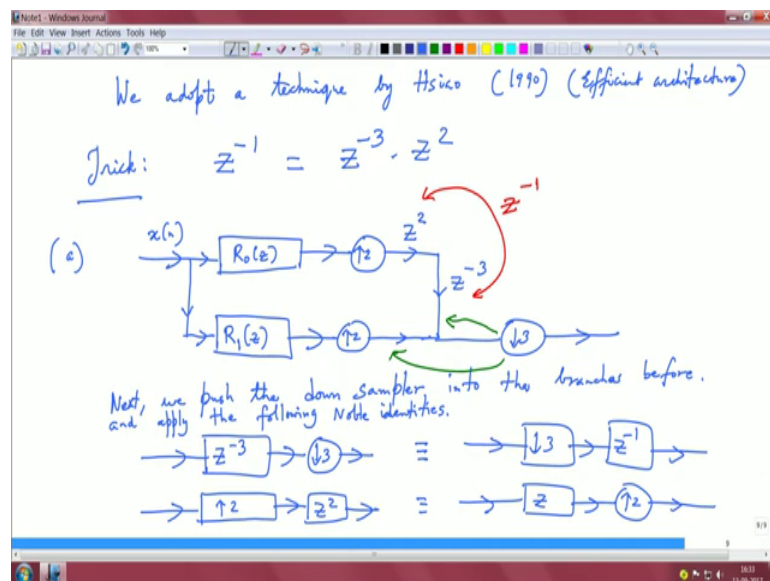 Note1 - Windows Journal
File Edit View Insert Actions Tools Help
100%
We adopt a technique by Hsiao (1990) (Efficient architecture)
Trick: z^-1 = z^-3 . z^2
(a) x(n) R0(z) ↑2 z^2 z^-1
z^-3
R1(z) ↑2 ↓3
Next, we push the down sampler into the branches before.
and apply the following Noble identities.
z^-3 ↓3 ≡ ↓3 z^-1
↑2 z^2 ≡ z ↑2
9/9
9
16:33